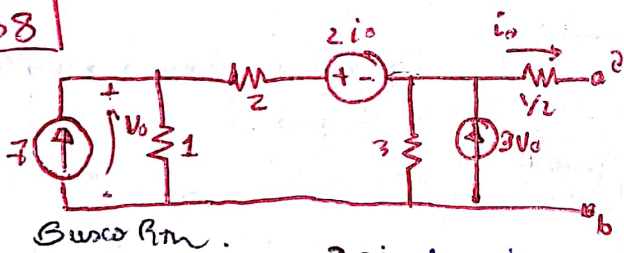 08
2io
io
+ -
a
2
1/2
+
Vo
-
7
1
3
3Vo
b
Busco Rth.